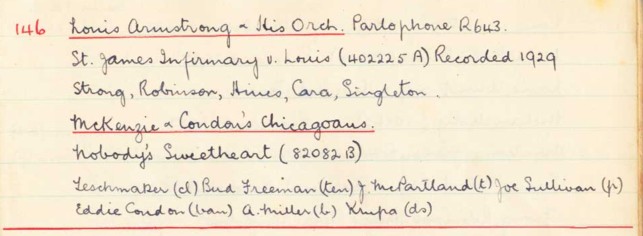 146 Louis Armstrong & His Orch. Parlophone R643.
St. James Infirmary v. Louis (402225 A) Recorded 1929
Strong, Robinson, Hines, Cara, Singleton.
McKenzie & Condon's Chicagoans.
Nobody's Sweetheart (82082 B)
Teschmaker (cl) Bud Freeman (ten) J. McPartland (t) Joe Sullivan (p)
Eddie Condon (ban) A. Miller (b) Krupa (ds)